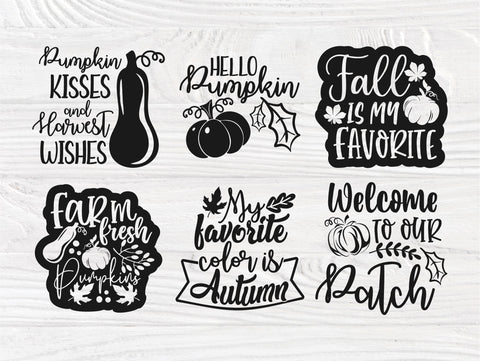 Pumpkin
KISSES
and
Harvest
WISHES
HELLO
Pumpkin
Fall
IS MY
FAVORITE
FARM
fresh
Pumpkins
My
favorite
color is
Autumn
Welcome
TO OUR
Patch